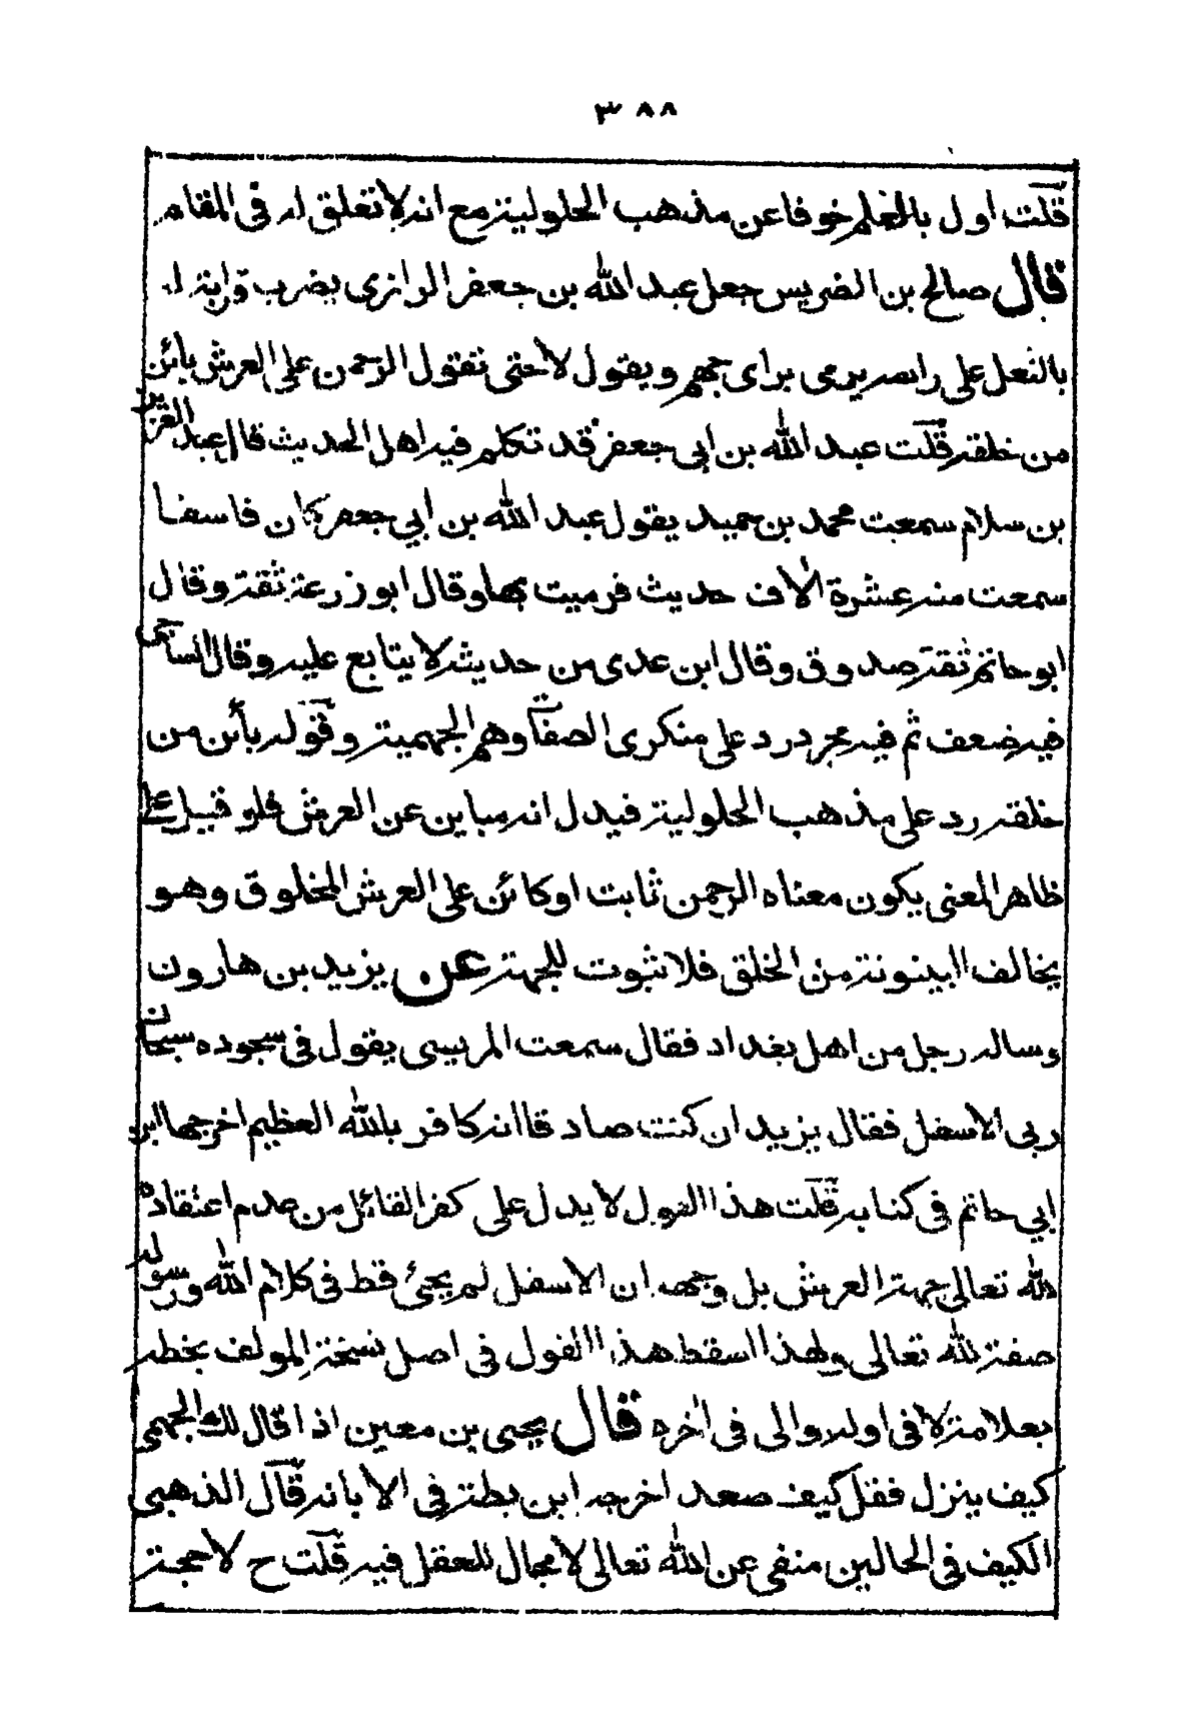 ٣٨٨
قلت اول بالعلم خوفا عن مذهب الحلولية مع انه لا تعلق له فى المقام
قال صالح بن الضريس جعل عبد الله بن جعفر الرازى يضرب قرابة له
بالنعل على راسه يرمى براى جهم ويقول لا حتى تقول الرحمن على العرش بائن
من خلقه قلت عبد الله بن ابى جعفر قد تكلم فيه اهل الحديث قال عبد العزيز
بن سلام سمعت محمد بن حميد يقول عبد الله بن ابي جعفر كان فاسقا
سمعت منه عشرة الاف حديث فرميت بها وقال ابو زرعة ثقة وقال
ابو حاتم ثقة صدوق وقال ابن عدى من حديثه لا يتابع عليه وقال الساجى
فيه ضعف ثم فيه مجرد رد على منكرى الصفات وهم الجهمية وقوله بأئن من
خلقه رد على مذهب الحلولية فيدل انه مباين عن العرش فلو قيل على
ظاهر المعنى يكون معناه الرحمن ثابت او كائن على العرش المخلوق وهو
يخالف البينونة من الخلق فلا ثبوت للجهة عن يزيد بن هارون
وساله رجل من اهل بغداد فقال سمعت المريسى يقول فى سجوده سبحان
ربى الاسفل فقال يزيد ان كنت صادقا انه كافر بالله العظيم اخرجها ابن
ابي حاتم فى كتابه قلت هذا القول لا يدل على كفر القائل من عدم اعتقاده
لله تعالى جهة العرش بل وجهه ان الاسفل لم يجئ قط فى كلام الله ورسوله
صفة لله تعالى ولهذا اسقط هذا القول فى اصل نسخة المولف بخطه
بعلامة لا فى اوله والى فى اخره قال يحيى بن معين اذا قال لك الجهمى
كيف ينزل فقل كيف صعد اخرجه ابن بطة فى الابانه قال الذهبى
الكيف فى الحالين منفى عن الله تعالى لا مجال للعقل فيه قلت ح لا حجة